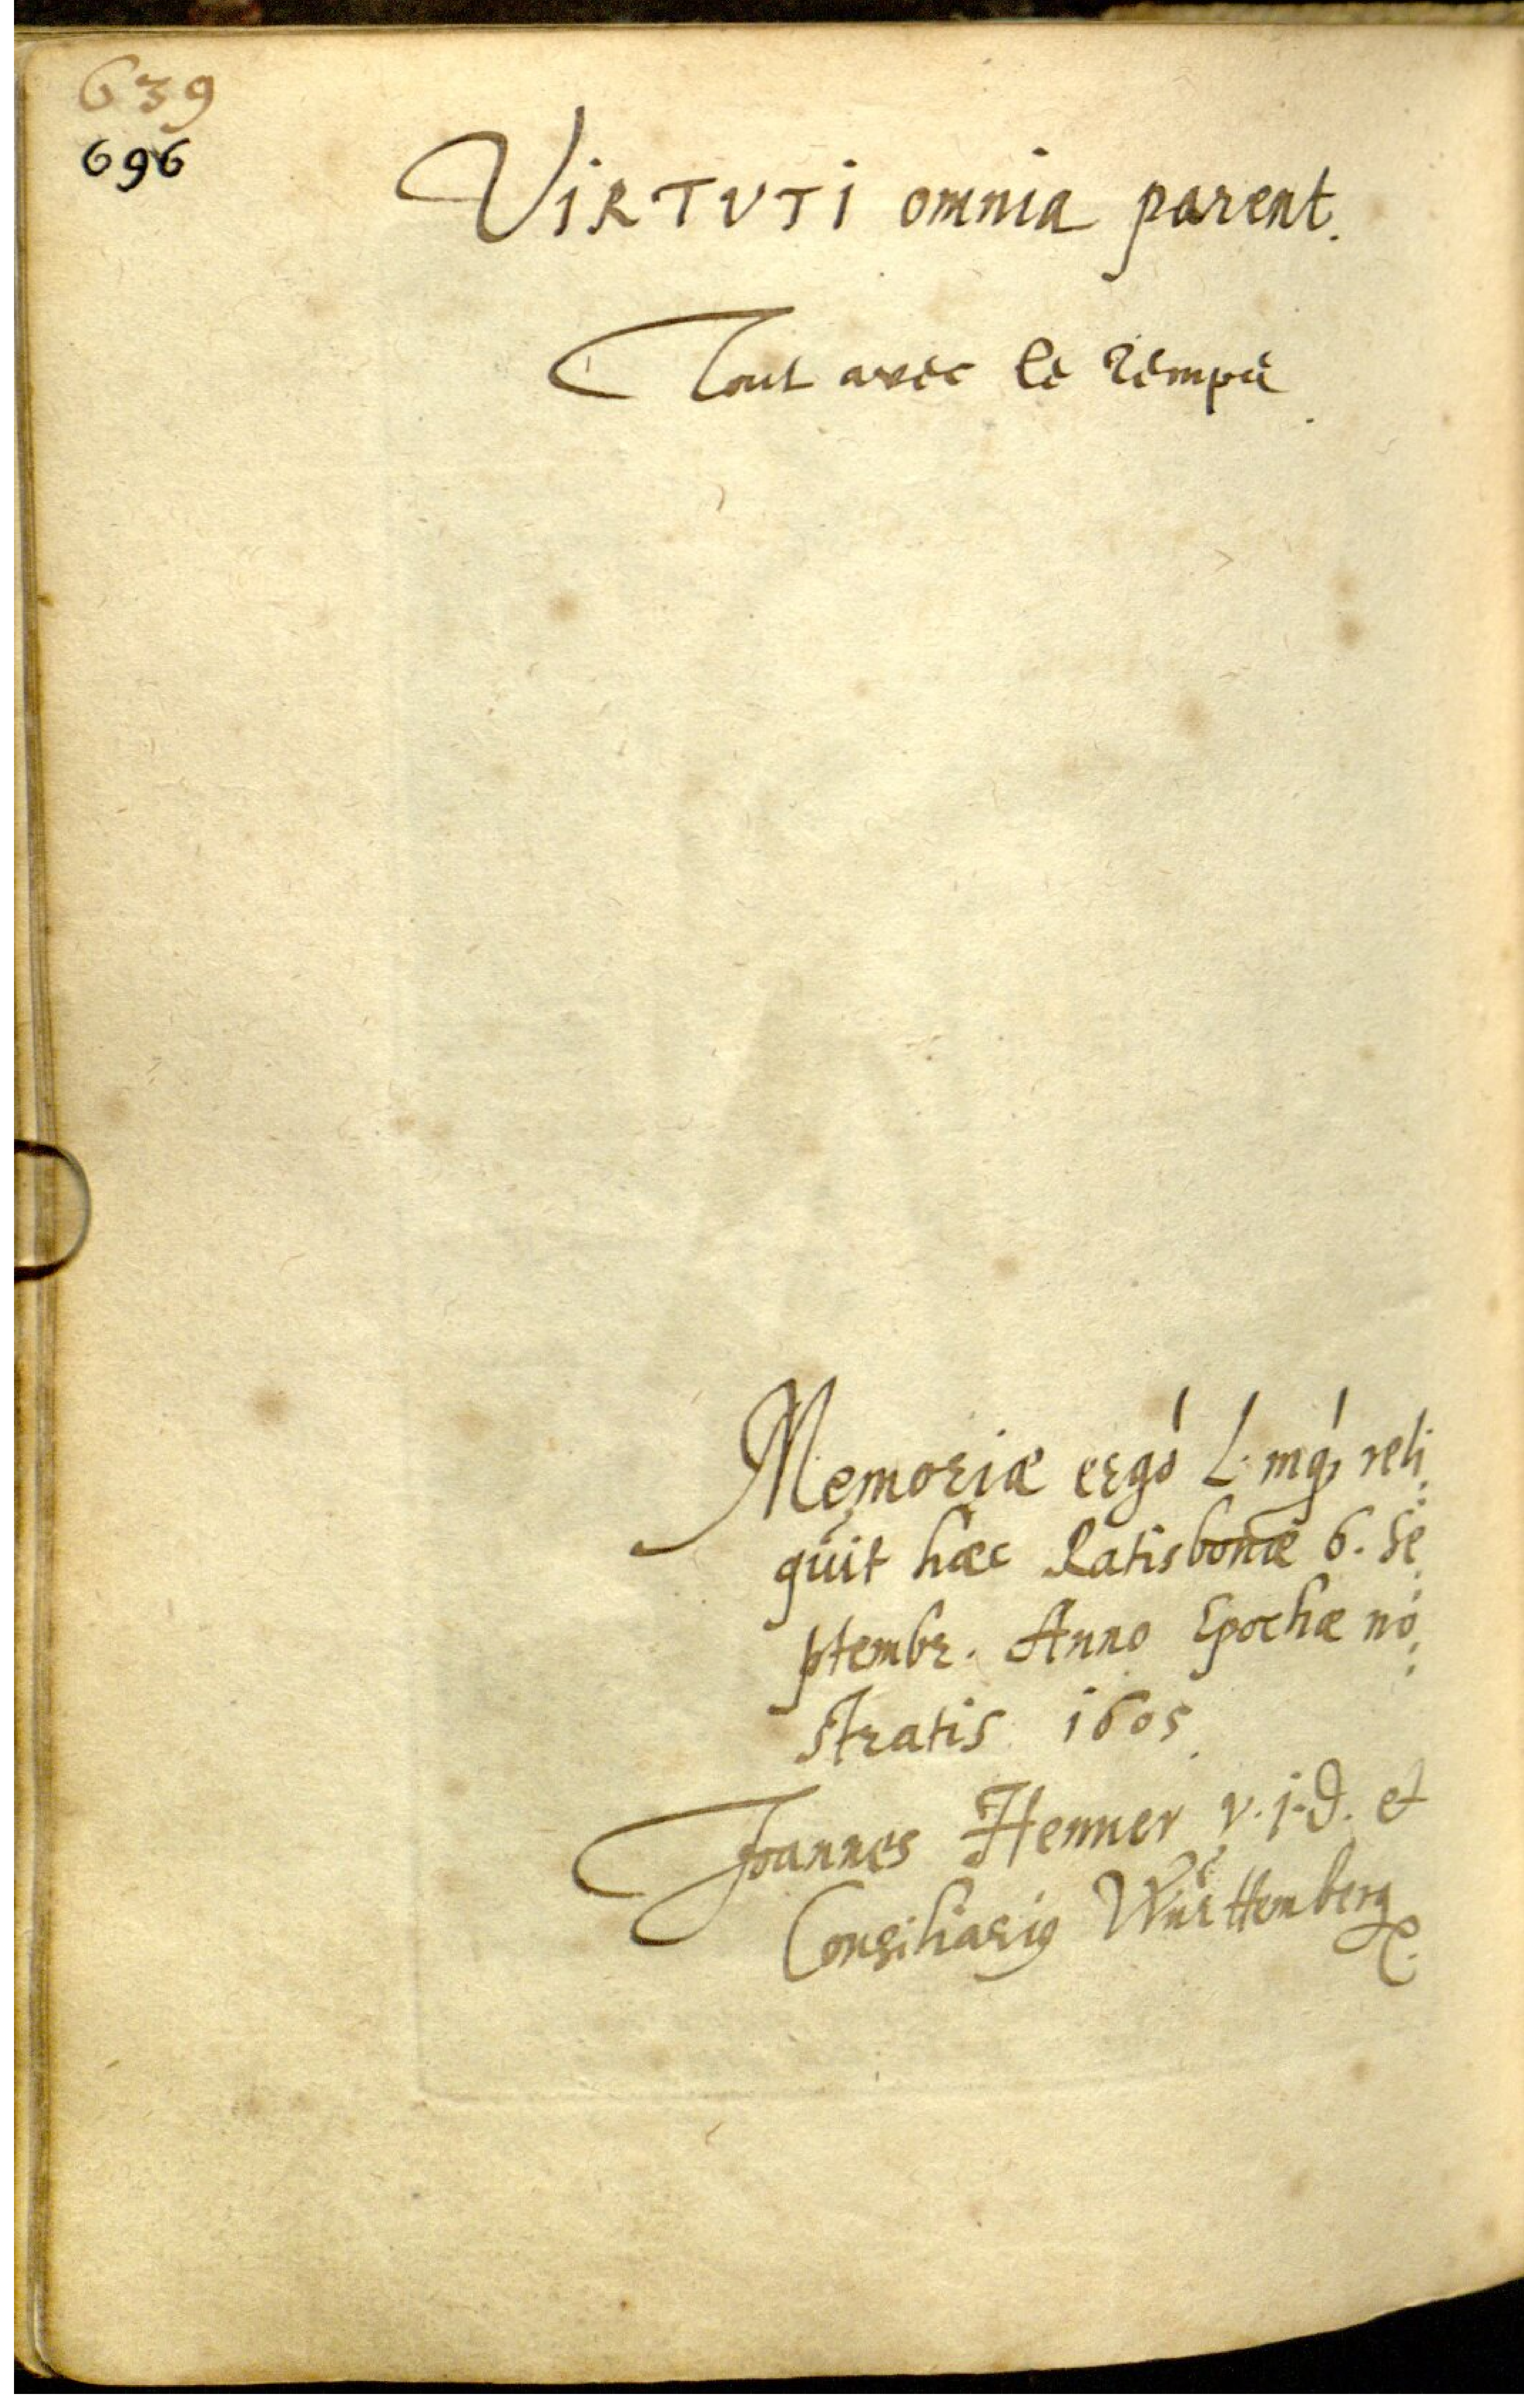 639
696
VIRTVTI omnia parent.
Tout avec le temps.
Memoriæ ergò L. mq́ reli:
quit hæc Ratisbonæ 6. Se:
ptembr. Anno Epochæ no:
stratis 1605.
Joannes Henner v.j.D. et
Consiliariq Württemberg